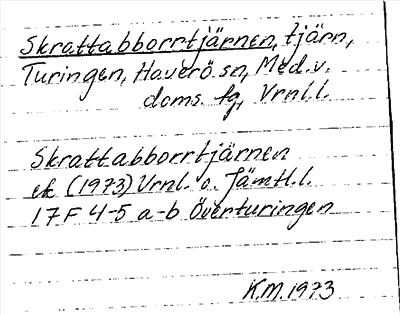 Skrattabborrtjärnen, tjärn,
Turingen, Haverö sn, Med.v.
doms. tg, Vrnl.l.
Skrattabborrtjärnen
ek (1973) Vrnl. o. Jämtl.l.
17F 4-5 a-b Överturingen
K.M. 1973